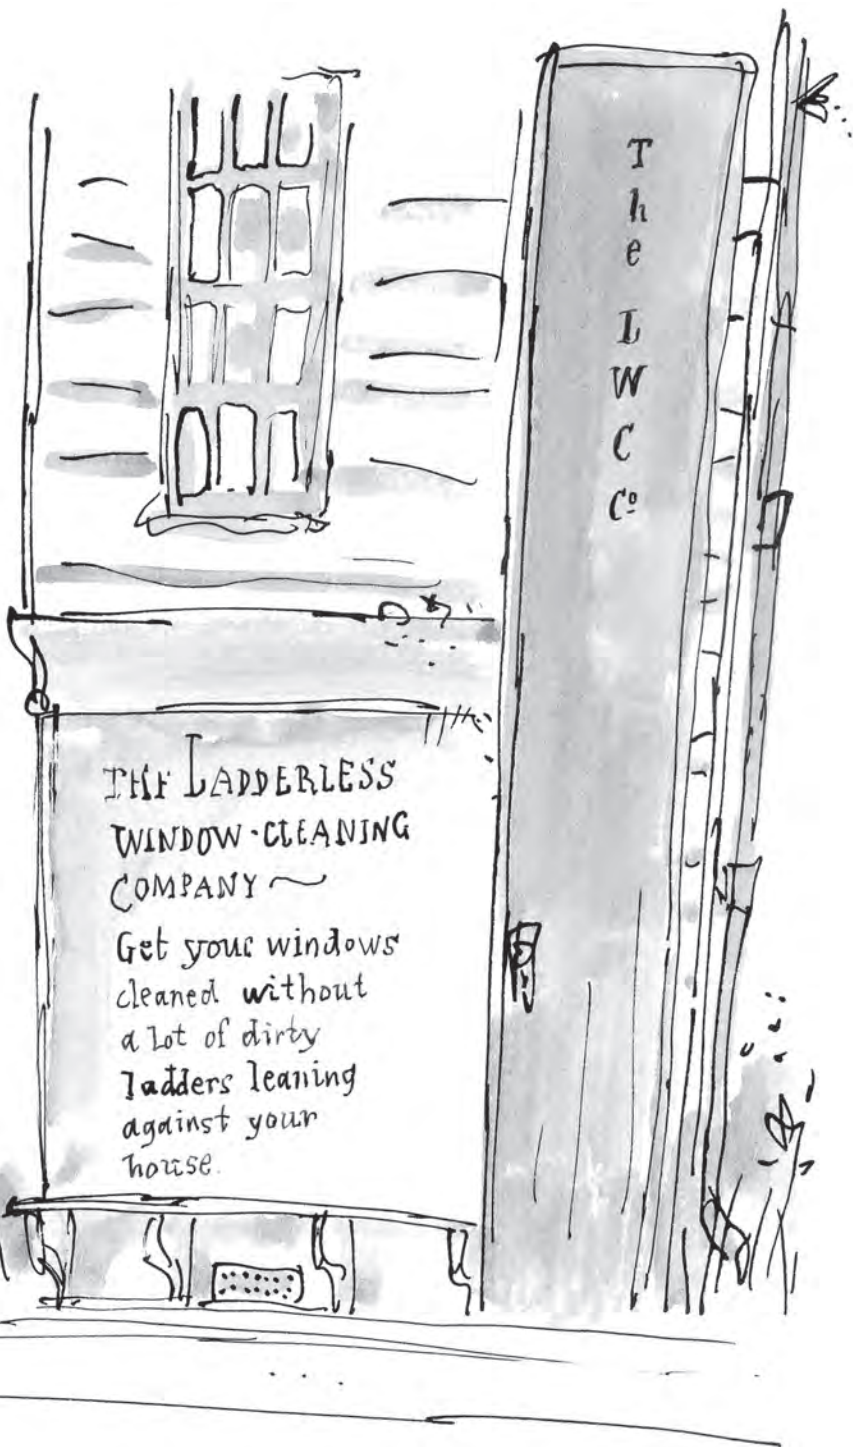 The
L
W
C
Cº
THE LADDERLESS
WINDOW-CLEANING
COMPANY ~
Get your windows
cleaned without
a lot of dirty
ladders leaning
against your
house.